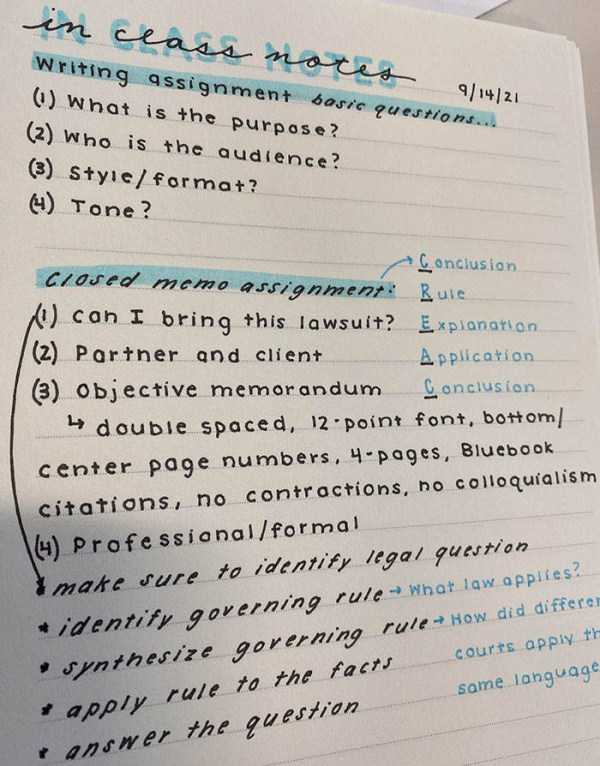 IN CLASS NOTES
in class notes
9/14/21
Writing assignment basic questions...
(1) What is the purpose?
(2) Who is the audience?
(3) Style/format?
(4) Tone?
Closed memo assignment:
Conclusion
Rule
Explanation
Application
Conclusion
(1) can I bring this lawsuit?
(2) Partner and client
(3) Objective memorandum
↳ double spaced, 12-point font, bottom/
center page numbers, 4-pages, Bluebook
citations, no contractions, no colloquialism
(4) Professional/formal
* make sure to identify legal question
* identify governing rule → What law applies?
* synthesize governing rule → How did
courts apply
same language
* apply rule to the facts
* answer the question